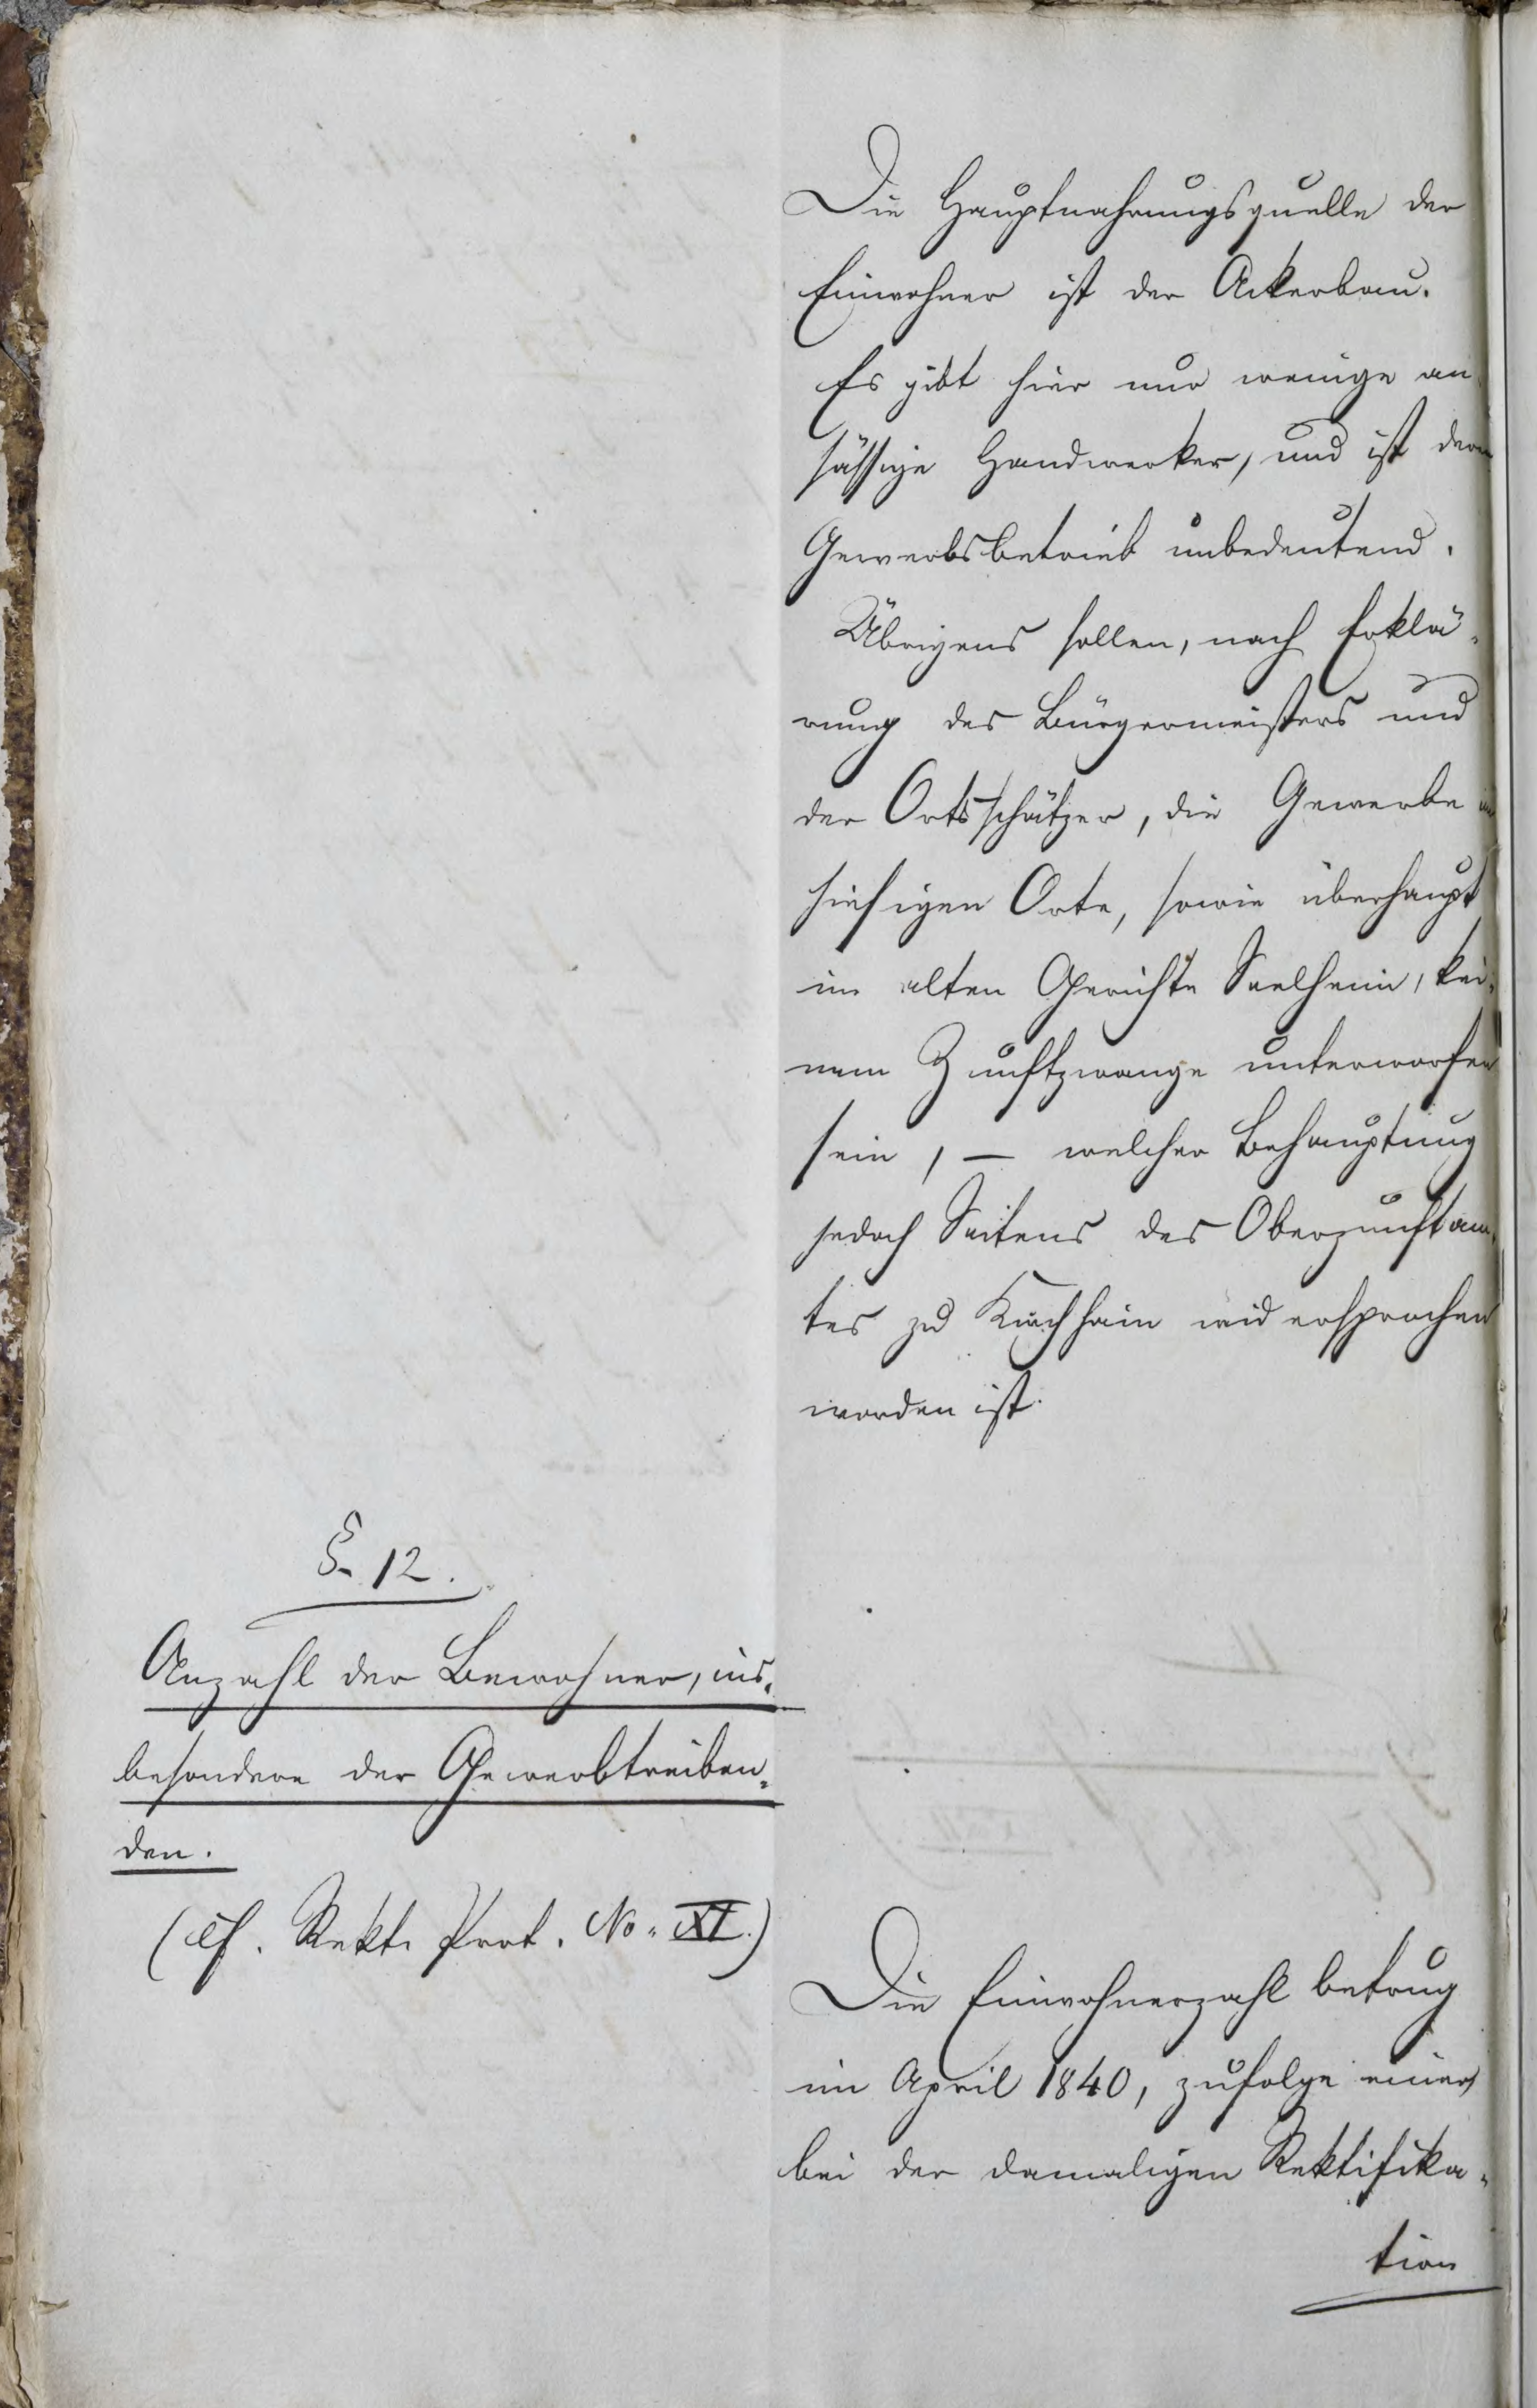 Die Hauptnahrungsquelle der
Einwohner ist der Ackerbau.
Es gibt hier nur wenige an
sässige Handwerker, und ist deren
Gewerbsbetrieb unbedeutend.
Übrigens sollen, nach Erklä-
rung des Bürgermeisters und
der Ortsschätzer, die Gewerbe im
hiesigen Orte, sowie überhaupt
im alten Gerichte Seelheim, kei-
nem Zunftzwange unterworfen
sein, — welcher Behauptung
jedoch Seitens des Oberzunftam-
tes zu Kirchhain widersprochen
worden ist.
§. 12.
Anzahl der Bewohner, ins-
besondere der Gewerbtreiben-
den.
(cf. Rekt. Prot. No. XI.)
Die Einwohnerzahl betrug
im April 1840, zufolge einer
bei der damaligen Rektifika-
tion